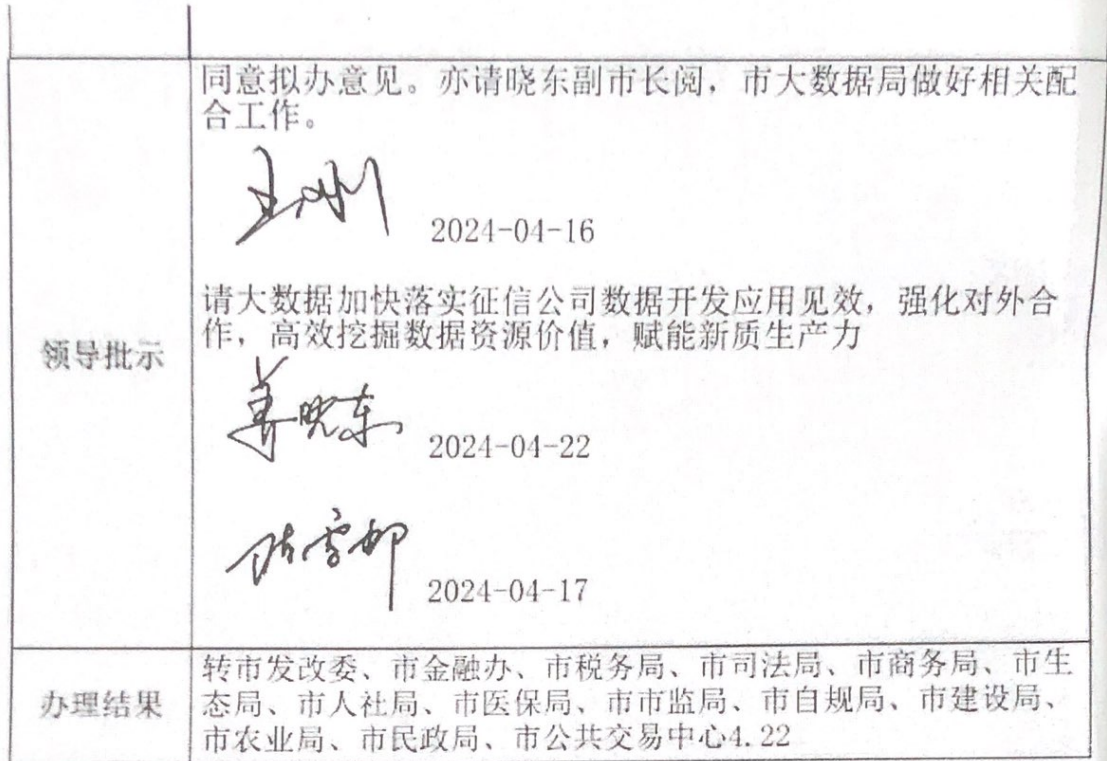 同意拟办意见。亦请晓东副市长阅，市大数据局做好相关配
合工作。
王刚
2024-04-16
领导批示
请大数据加快落实征信公司数据开发应用见效，强化对外合
作，高效挖掘数据资源价值，赋能新质生产力
姜晓东
2024-04-22
2024-04-17
办理结果
转市发改委、市金融办、市税务局、市司法局、市商务局、市生
态局、市人社局、市医保局、市市监局、市自规局、市建设局、
市农业局、市民政局、市公共交易中心4.22